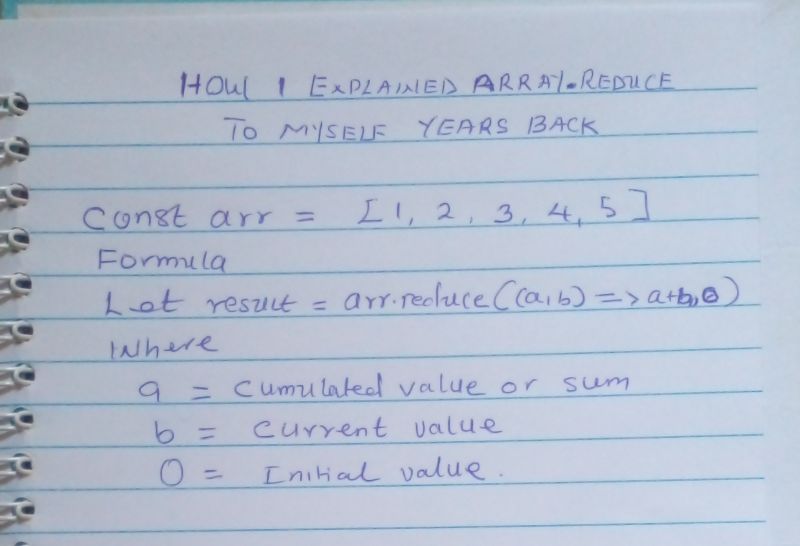 HOW I EXPLAINED ARRAY.REDUCE
TO MYSELF YEARS BACK
Const arr = [1, 2, 3, 4, 5]
Formula
Let result = arr.reduce((a,b) => a+b,0)
Where
a = Cumulated value or sum
b = Current value
0 = Initial value.